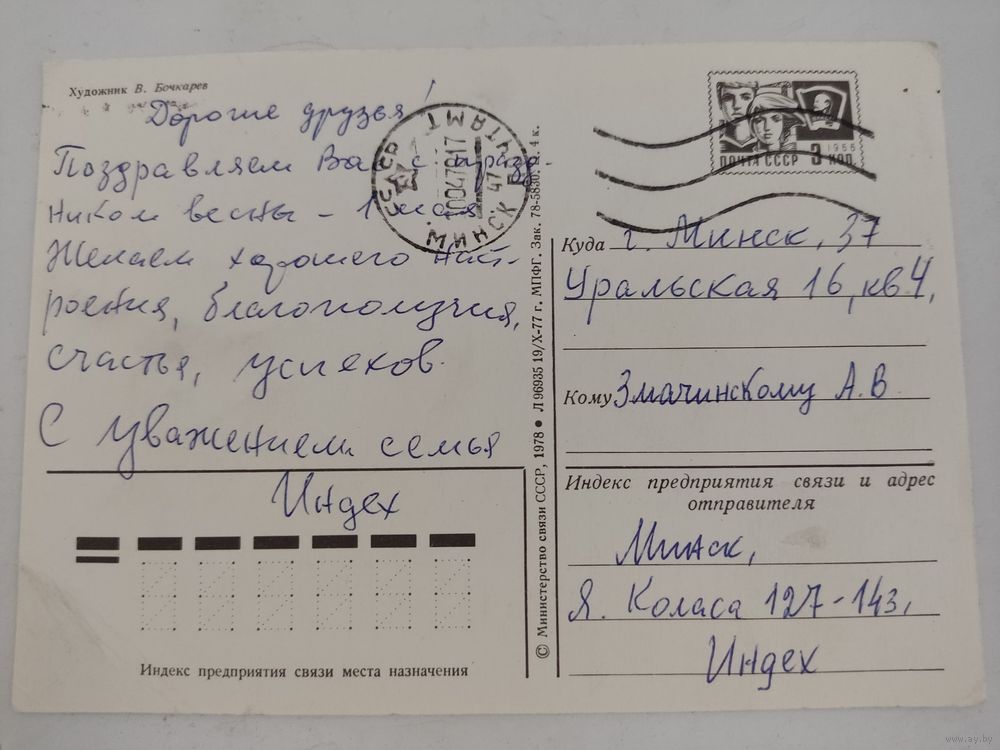 Художник В. Бочкарев
Дорогие друзья!
Поздравляем Вас с празд-
ником весны - 1 мая
Желаем хорошего наст-
роения, благополучия,
счастья, успехов.
С уважением семья
Индех
Индекс предприятия связи места назначения
© Министерство связи СССР, 1978 ● Л 96935 19/X-77 г. МПФГ. Зак. 78-5830. ц. 4 к.
МИНСК
ПОЧТАМТ
ПОЧТА СССР 3 КОП.
1966
Куда г. Минск, 37
Уральская 16, кв 4,
Кому Змачинскому А.В
Индекс предприятия связи и адрес
отправителя
Минск,
Я. Коласа 127-143,
Индех
www.ay.by